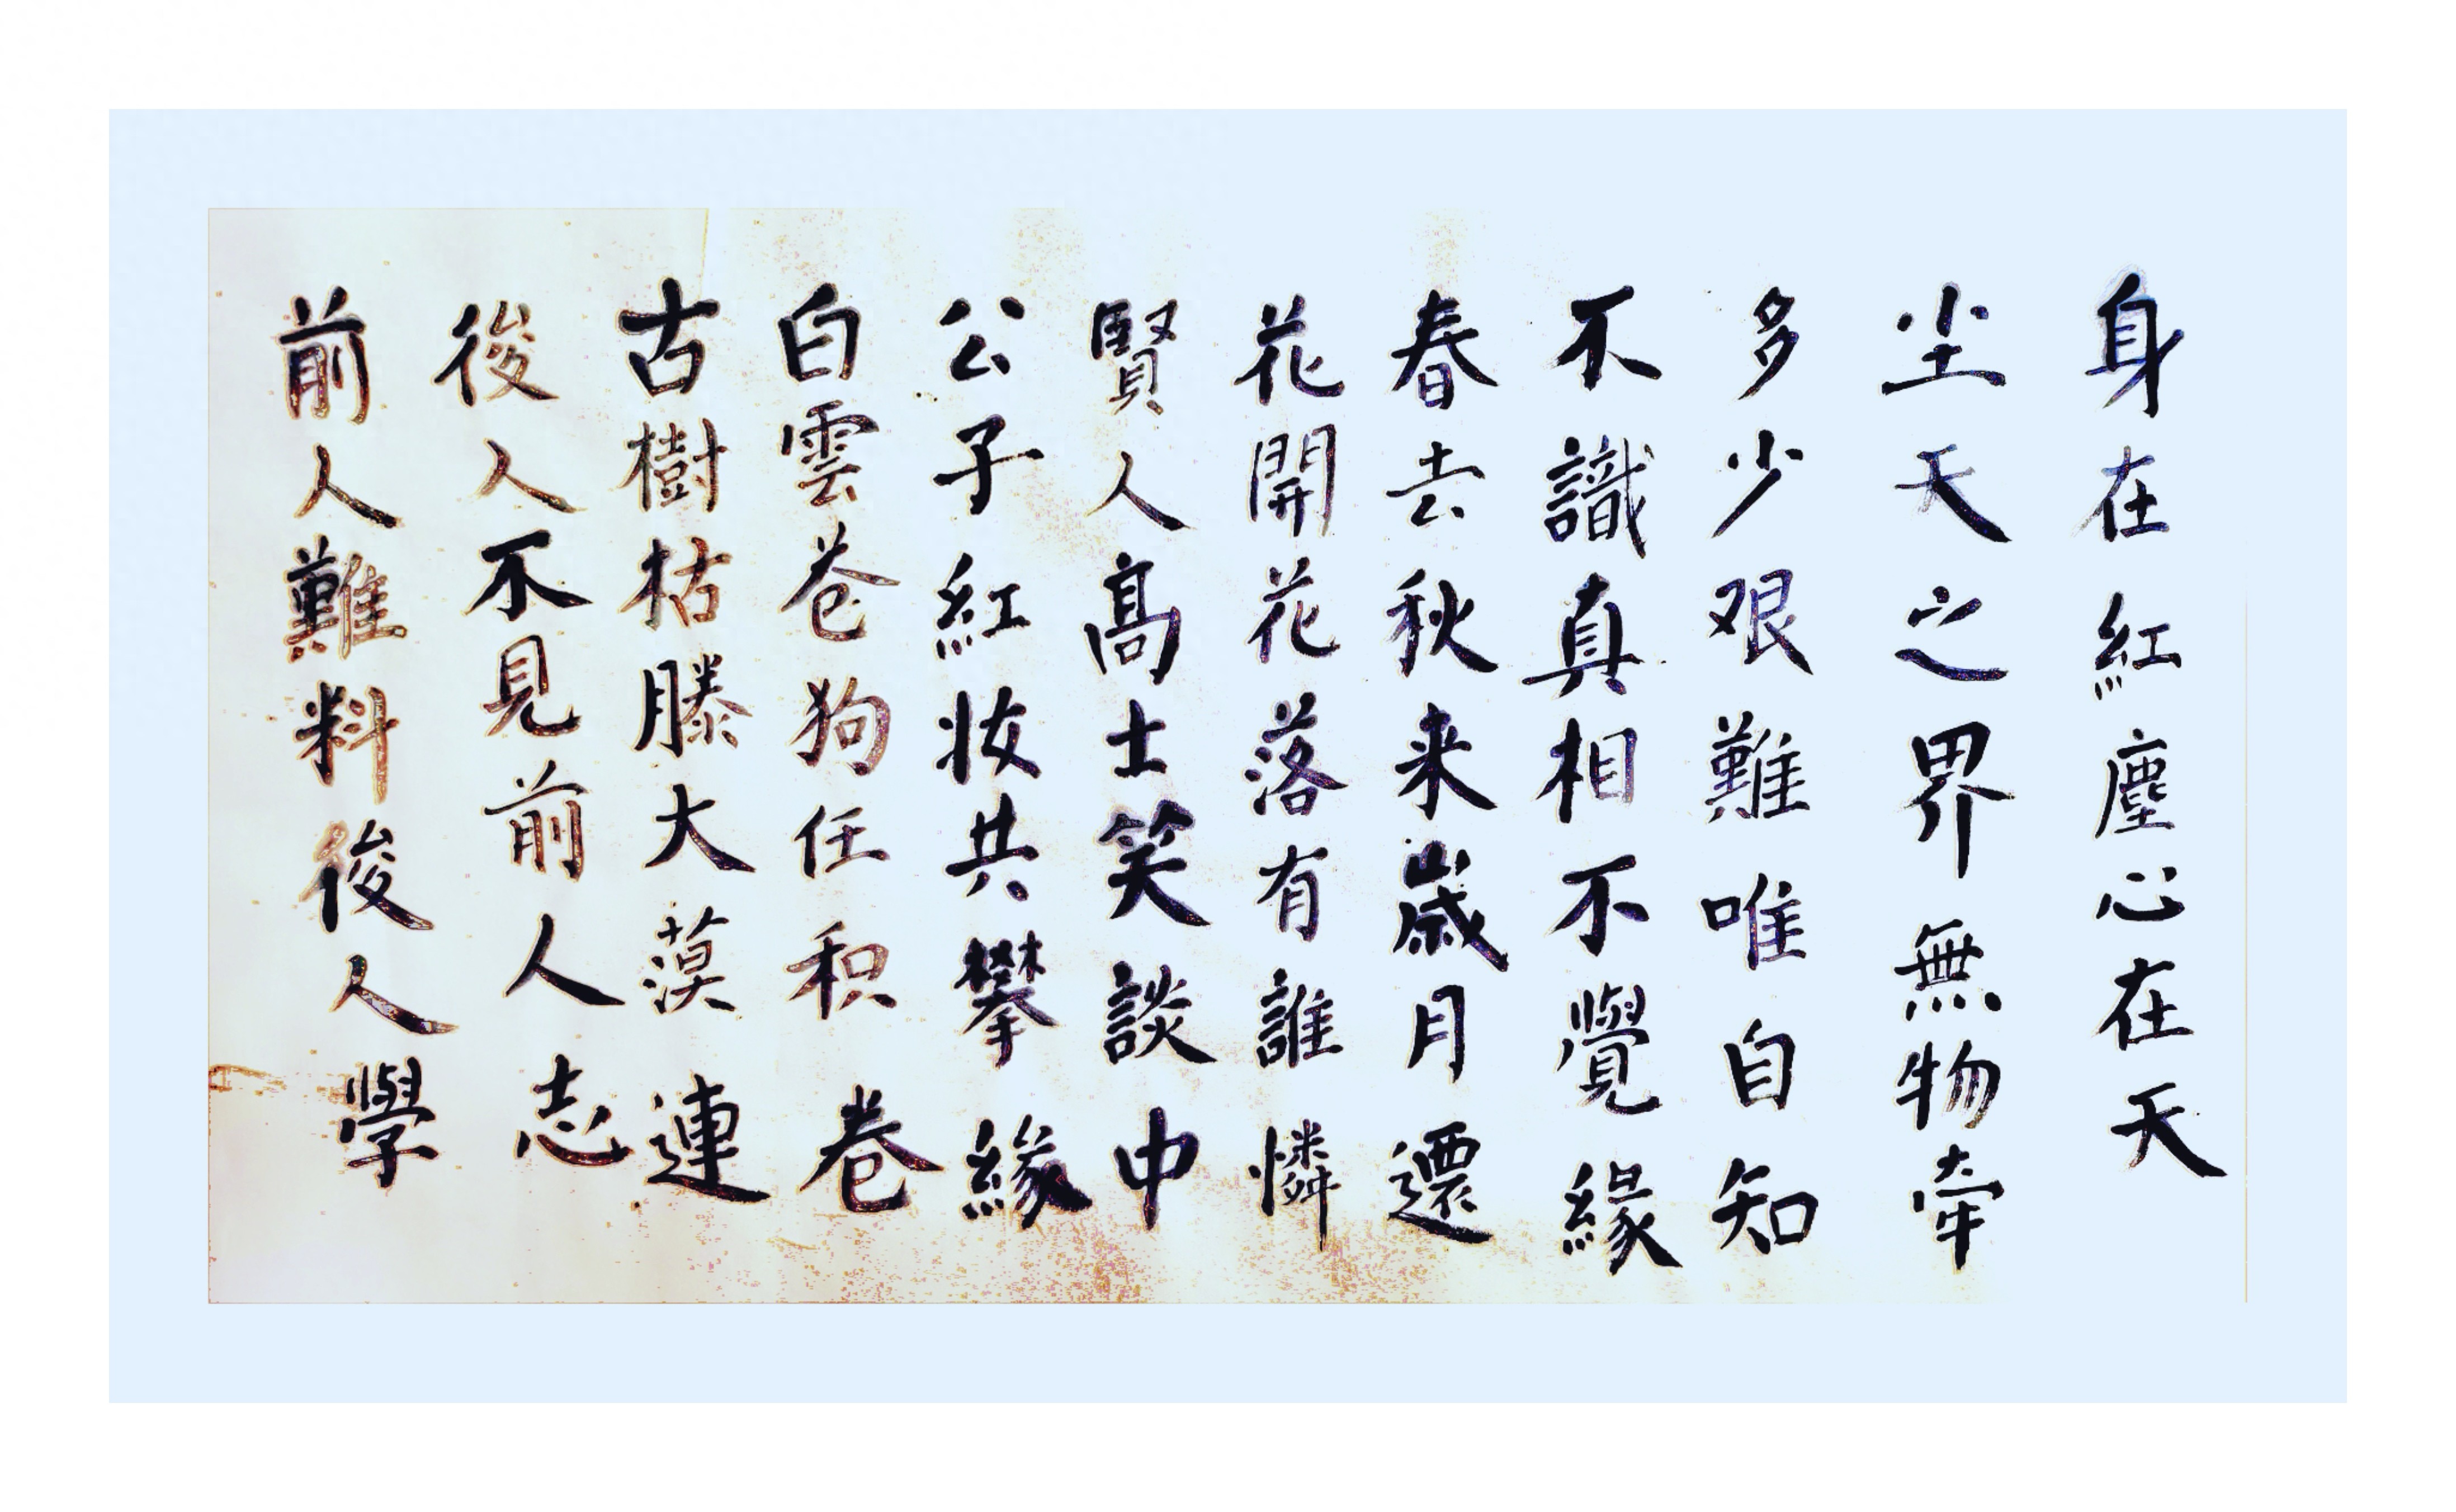 身在紅塵心在天
尘天之界無物牽
多少艰難唯自知
不識真相不覺緣
春去秋来歲月還
花開花落有誰憐
賢人高士笑談中
公子紅妆共攀緣
白雲苍狗任积卷
古樹枯滕大漠連
後人不見前人志
前人難料後人學